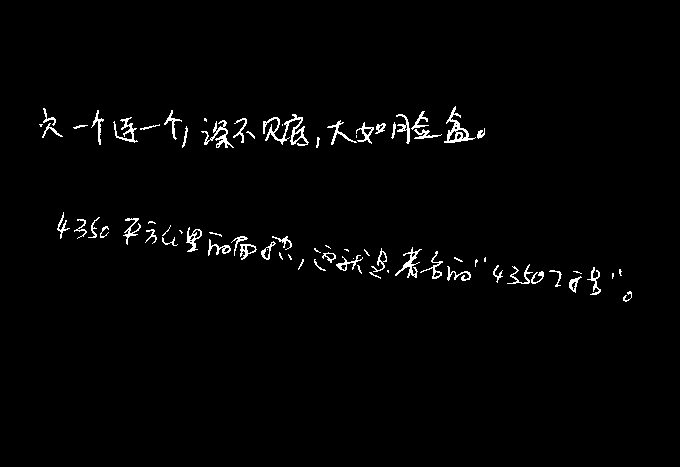 穴一个连一个,深不见底,大如脸盆。
4350平方公里的面积,这就是著名的“4350号”。